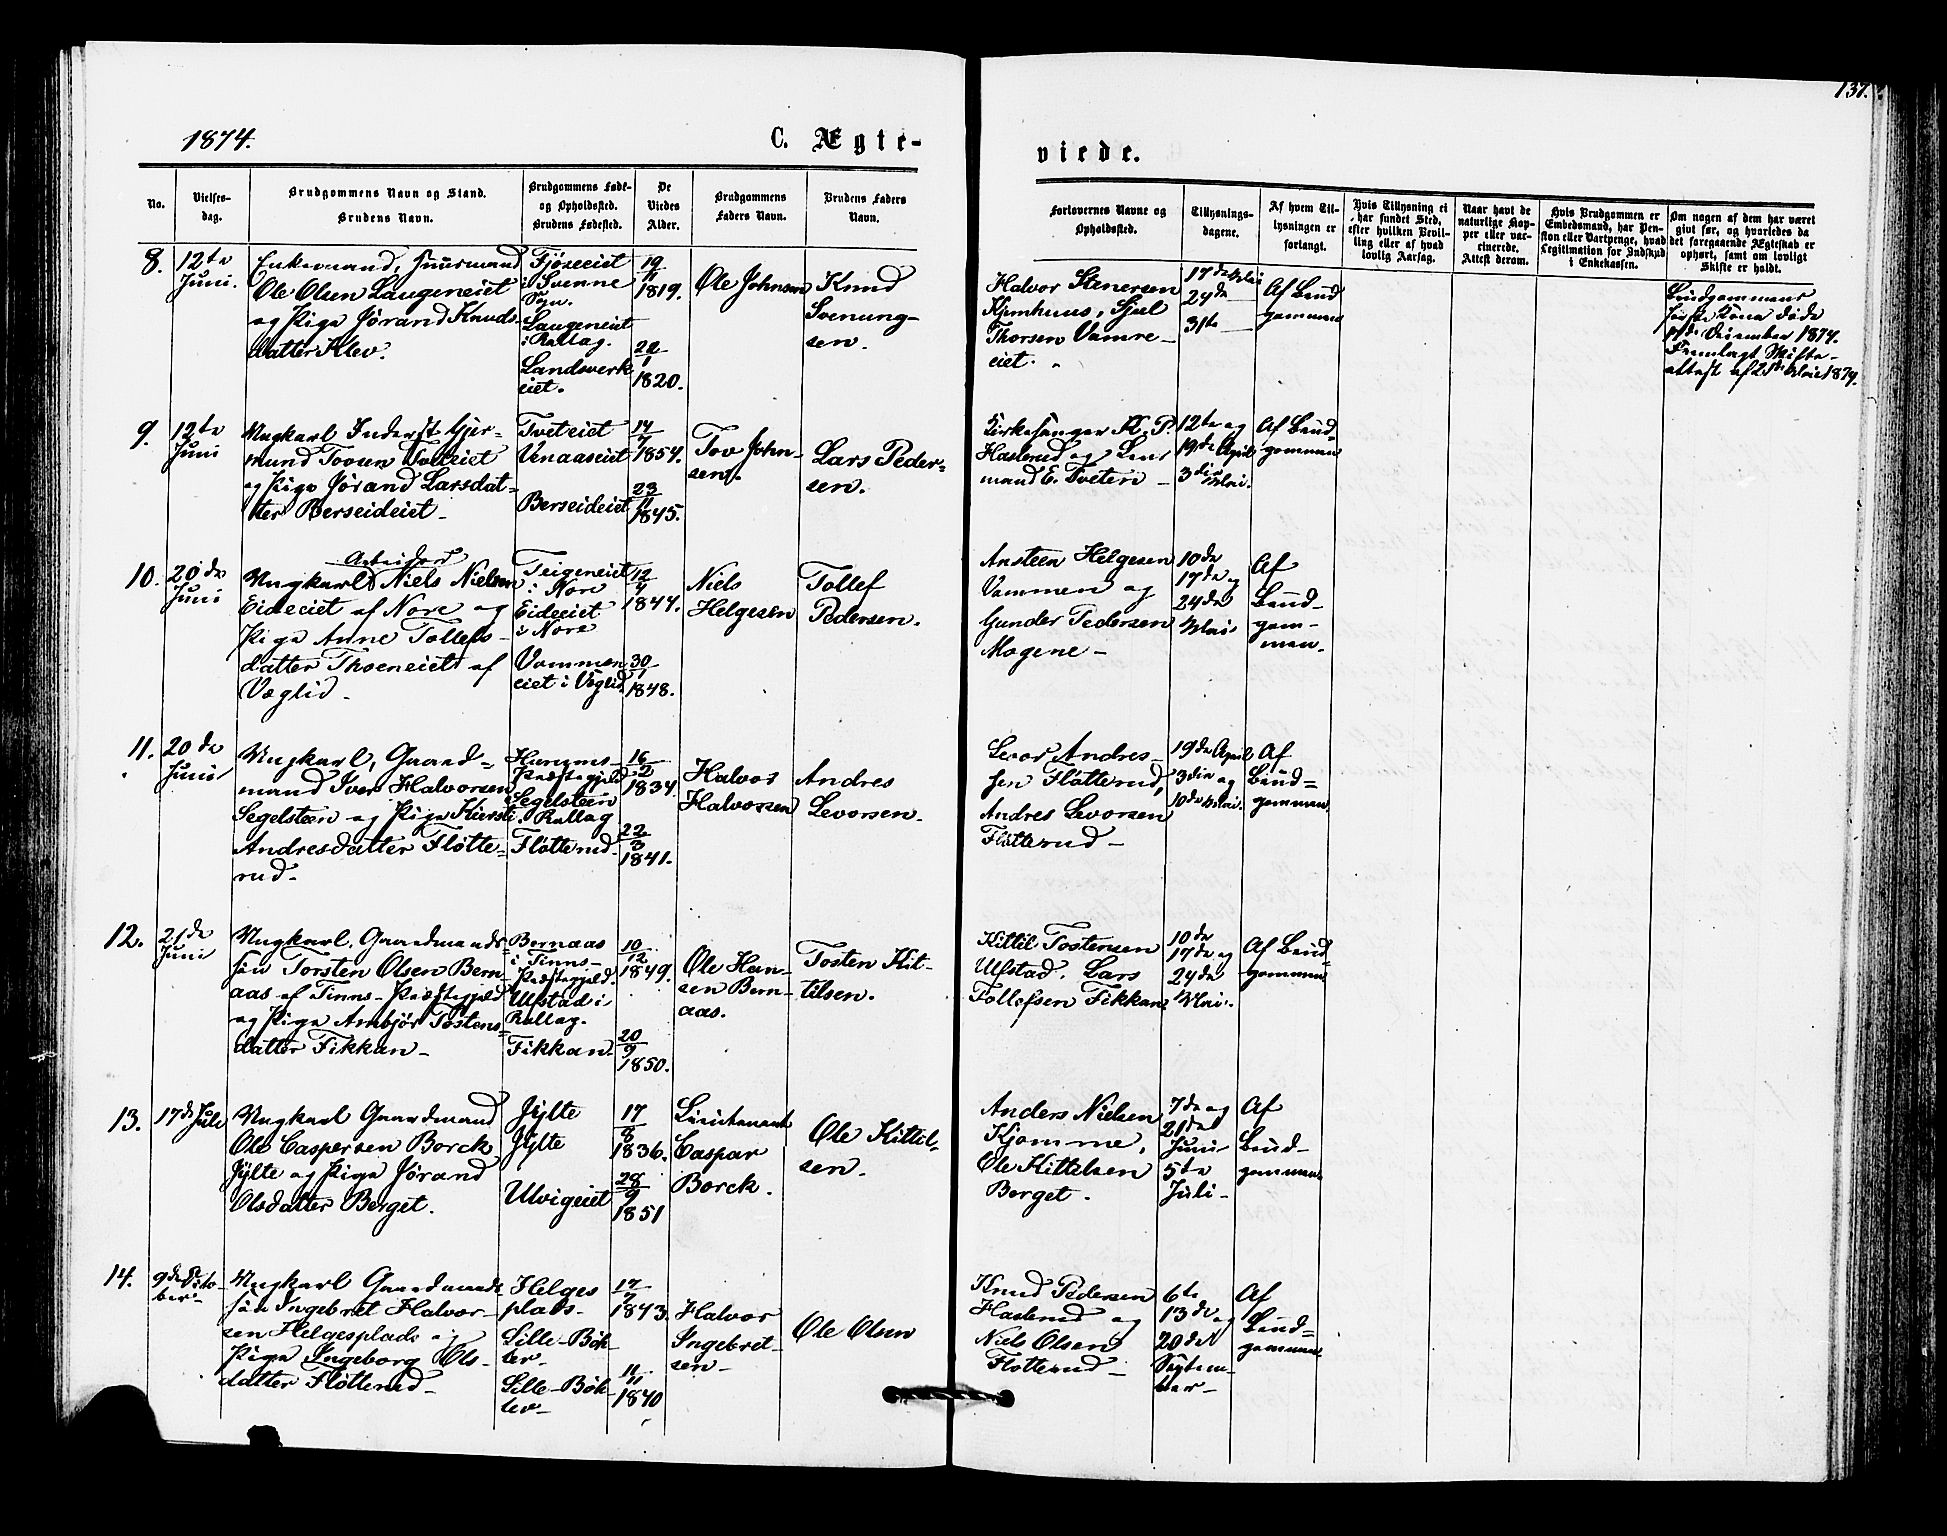 137.
1874.
C. Ægte-
viede.
No.
Vielses-
dag.
Brudgommens Navn og Stand.
Brudens Navn.
Brudgommens Føde-
og Opholdssted.
Brudens Fødested.
De
Viedes
Alder.
Brudgommens
Faders Navn.
Brudens Faders
Navn.
Forlovernes Navne og
Opholdssted.
Tillysnings-
dagene.
Af hvem Til-
lysningen er
forlangt.
Hvis Tillysning ei
har fundet Sted,
efter hvilken Bevil-
ling eller af hvad
lovlig Aarsag.
Naar havt de
naturlige Kop-
per eller vac-
cinerede.
Attest derom.
Hvis Brudgommen er
Embedsmand, har Pen-
sion eller Vartpenge, hvad
Legitimation for Indskud
i Enkekassen.
Om nogen af dem har været
gift før, og hvorledes da
det foregaaende Ægteskab er
ophørt, samt om lovligt
Skifte er holdt.
8.
12te
Juni.
Enkemand, Huusmand
Ole Olsen Laugeneiet
og Pige Jørand Knuds-
datter Klev.
Fjøseeiet
i Svenne
Sogn.
Laugeneiet
i Rollag.
Landsverk
eiet.
19
11
1819.
22
1
1820.
Ole Johnsen
Knud
Svenung-
sen.
Halvor Stenersen
Kjemhuus, Sjul
Thorsen Vamre-
eiet.
17de Mai
24de —
31te —
Af Brud
gommen
Brudgommens
første Kone døde
December 1874.
Fremlagt Skifte-
attest af 21de Mai 1874.
9.
12te
Juni
Ungkarl Inderst Gjer-
mund Tovsen Tveteiet
og Pige Jørand Larsdat-
ter Berseideiet —
Tveteiet
Venaaseiet
Berseideiet
14
7
1854.
23
11
1845.
Tov John-
sen.
Lars Peder-
sen.
Kirkesanger K. P.
Haslerud og Lens
mand E. Tveten —
12te og
19de April
3die Mai.
Af Brud-
gommen
10.
20de
Juni
Arbeider
Ungkarl Niels Nielsen
Eideeiet af Nore og
Pige Anne Tollefs-
datter Thoeneiet af
Væglid —
Teigeneiet
i Nore
Eideeiet
i Nore
Vammen
eiet i Væglid
12
4
1844.
30
1
1848.
Niels
Helgesen
Tollef
Pedersen.
Ansteen Helgesen
Vammen og
Gunder Pedersen
Mogene —
10de
17de og
24de
Mai
Af
Brud-
gom-
men.
11.
20de
Juni
Ungkarl, Gaard-
mand Iver Halvorsen
Segelsteen og Pige Kiersti
Andresdatter Fløtte-
rud —
Præstegjeld
Segelsteen
i Rollag
Fløtterud
16
2
1834.
22
3
1841.
Halvor
Halvorsen
Andres
Levorsen —
Levor Andres-
sen Fløtterud,
Andres Levorsen
Fløtterud —
19de April
3die og
10de Mai.
Af
Brud-
gommen.
12.
21de
Juni
Ungkarl, Gaardmands-
søn Torsten Olsen Bern-
aas af Tinns-Præstegjeld
og Pige Ambjør Tostens-
datter Fikkan —
Bernaas
i Tinns-
Præstegjeld.
Ulfstad i
Rollag.
Fikkan
10
12
1849.
20
9
1850.
Ole Han-
sen Bern-
aas.
Tosten Kit-
tilsen.
Kittil Tostensen
Ulfstad, Lars
Tollefsen Fikkan
10de
17de og
24de
Mai.
Af Brud-
gommen
13.
17de Juli
Ungkarl Gaardmand
Ole Caspersen Borck
Jylte og Pige Jørand
Olsdatter Berget.
Jylte
Jylte
Ulvigeiet
17
8
1836.
28
9
1851
Lieutenant
Caspar
Borck.
Ole Kittil-
sen.
Anders Nielsen
Kjomme,
Ole Kittelsen
Berget.
7de og
21de
Juni
5te
Juli —
Af
Brud-
gommen
14.
9de Octo-
ber —
Ungkarl Gaardmands-
søn Ingebret Halvor-
sen Helgesplads og
Pige Ingeborg Ols-
datter Fløtterud —
Helges
plads —
Lille-Bøk-
ler —
Lille-Bøk-
ler —
17
7
1843.
11
11
1840
Halvor
Ingebret-
sen —
Ole Olsen
Knud Pedersen
Haslerud og
Niels Olsen
Fløtterud —
6te
13de og
20de
Septem-
ber —
Af
Brud-
gommen